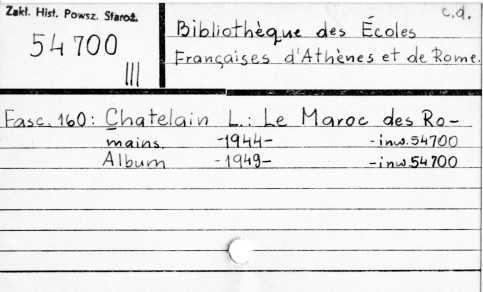 Zakł. Hist. Powsz. Staroż.
54 700
III
c.d.
Bibliothèque des Écoles
Françaises d'Athènes et de Rome.
Fasc. 160: Chatelain L.: Le Maroc des Ro-
mains. -1944- -inw. 54700
Album -1949- -inw. 54700